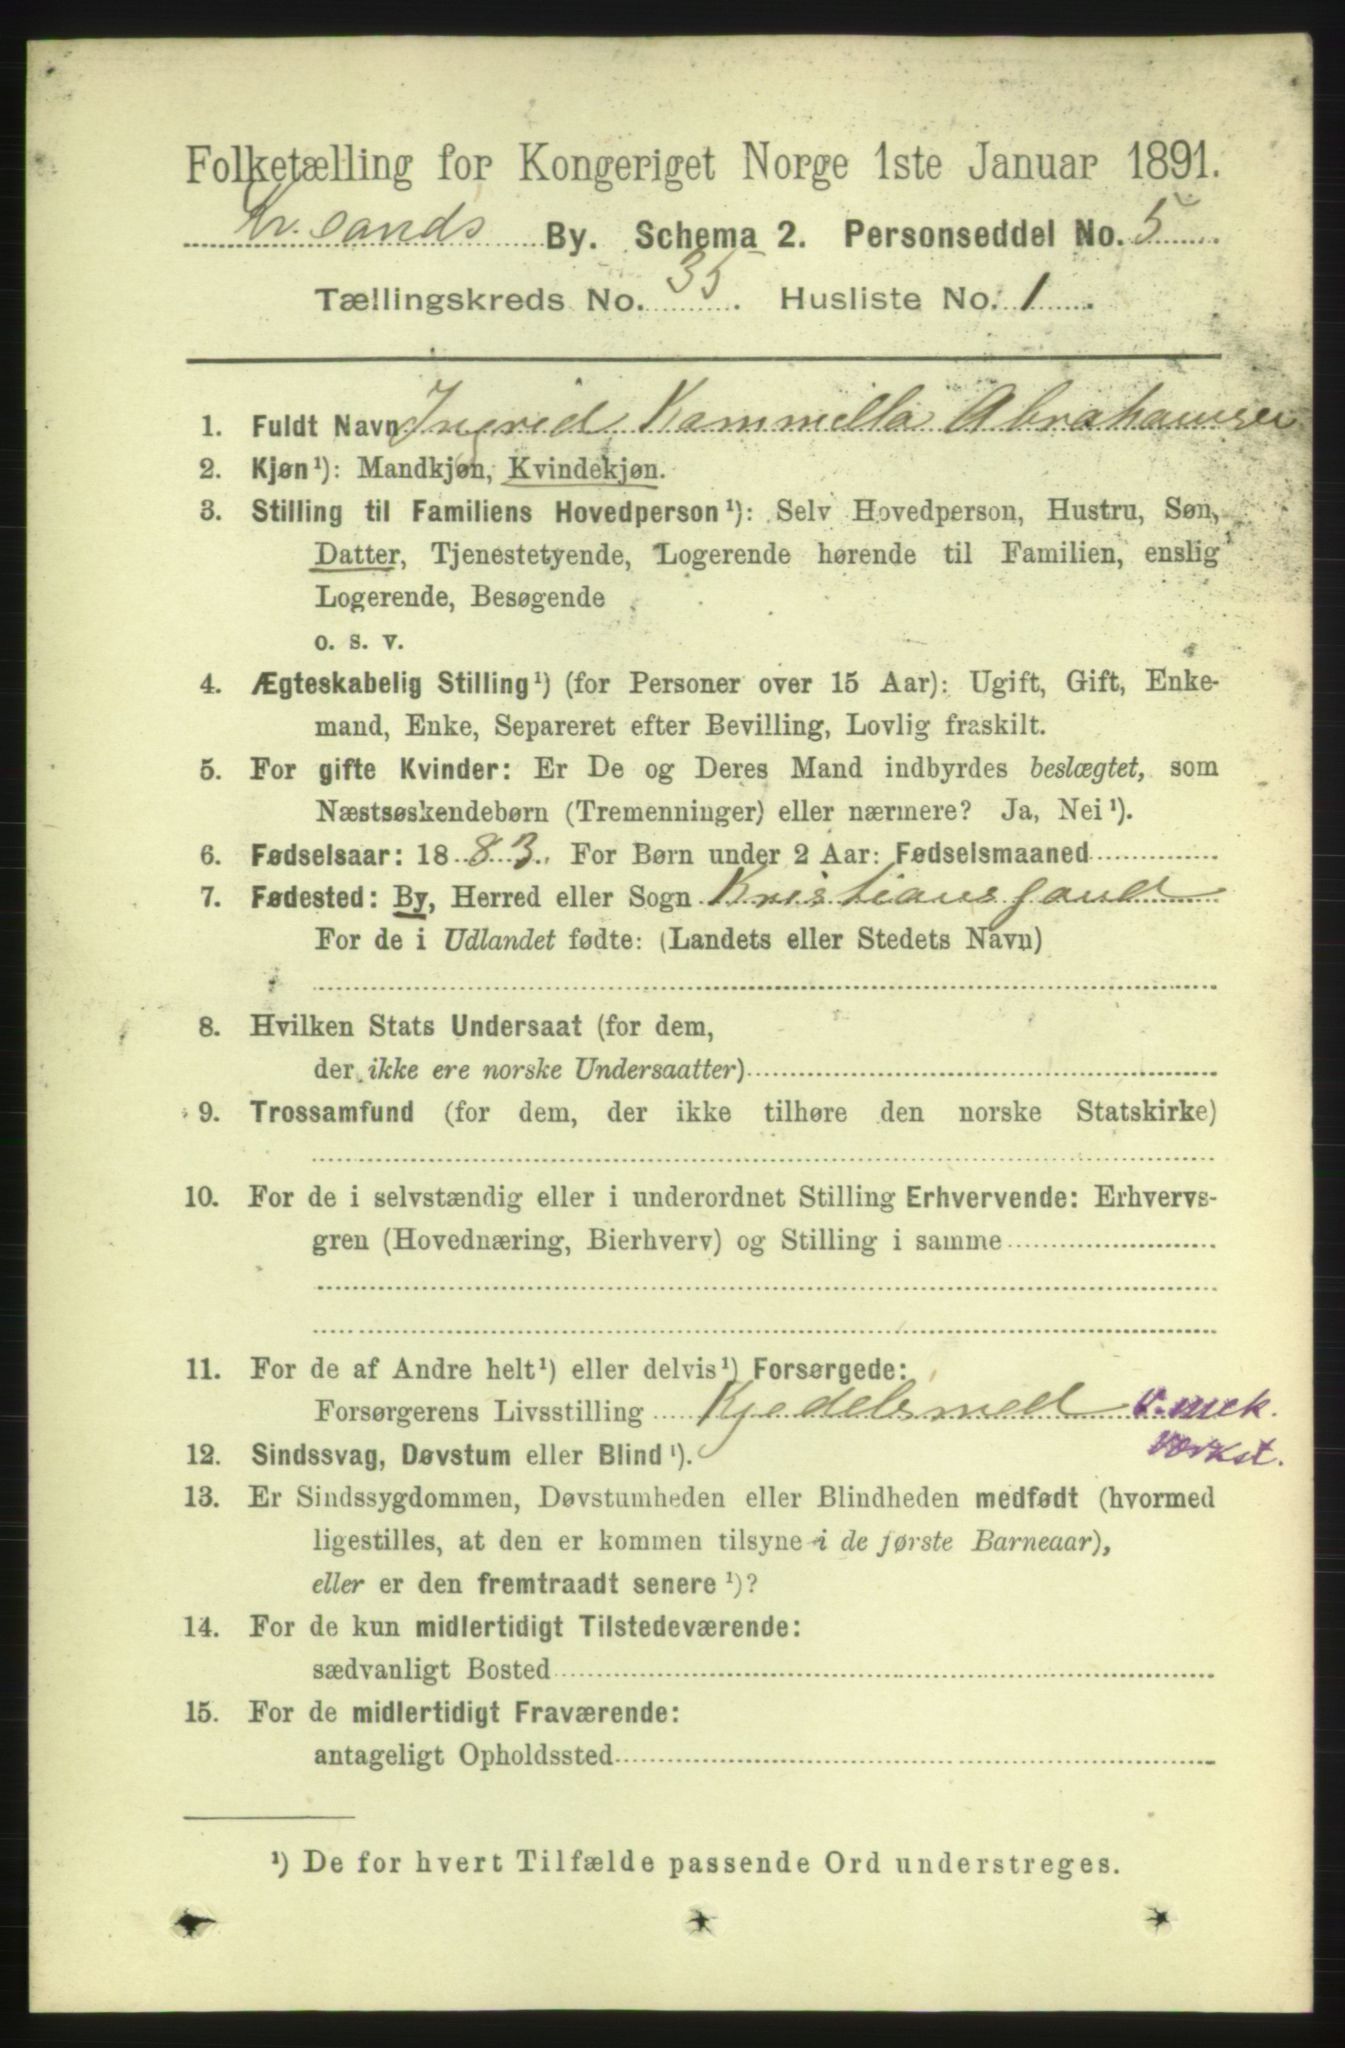 Folketælling for Kongeriget Norge 1ste Januar 1891.
Kr.sands By. Schema 2. Personseddel No. 5
Tællingskreds No. 35. Husliste No. 1.
1. Fuldt Navn Ingrid Kammilla Abrahamsen
2. Kjøn¹): Mandkjøn, Kvindekjøn.
3. Stilling til Familiens Hovedperson¹): Selv Hovedperson, Hustru, Søn,
Datter, Tjenestetyende, Logerende hørende til Familien, enslig
Logerende, Besøgende
o. s. v.
4. Ægteskabelig Stilling¹) (for Personer over 15 Aar): Ugift, Gift, Enke-
mand, Enke, Separeret efter Bevilling, Lovlig fraskilt.
5. For gifte Kvinder: Er De og Deres Mand indbyrdes beslægtet, som
Næstsøskendebørn (Tremenninger) eller nærmere? Ja, Nei¹).
6. Fødselsaar: 1883. For Børn under 2 Aar: Fødselsmaaned
7. Fødested: By, Herred eller Sogn Kristianssand
For de i Udlandet fødte: (Landets eller Stedets Navn)
8. Hvilken Stats Undersaat (for dem,
der ikke ere norske Undersaatter)
9. Trossamfund (for dem, der ikke tilhøre den norske Statskirke)
10. For de i selvstændig eller i underordnet Stilling Erhvervende: Erhvervs-
gren (Hovednæring, Bierhverv) og Stilling i samme
11. For de af Andre helt¹) eller delvis¹) Forsørgede:
Forsørgerens Livsstilling Kjedelsmed v. mek.
værkst.
12. Sindssvag, Døvstum eller Blind¹).
13. Er Sindssygdommen, Døvstumheden eller Blindheden medfødt (hvormed
ligestilles, at den er kommen tilsyne i de første Barneaar),
eller er den fremtraadt senere¹)?
14. For de kun midlertidigt Tilstedeværende:
sædvanligt Bosted
15. For de midlertidigt Fraværende:
antageligt Opholdssted
¹) De for hvert Tilfælde passende Ord understreges.